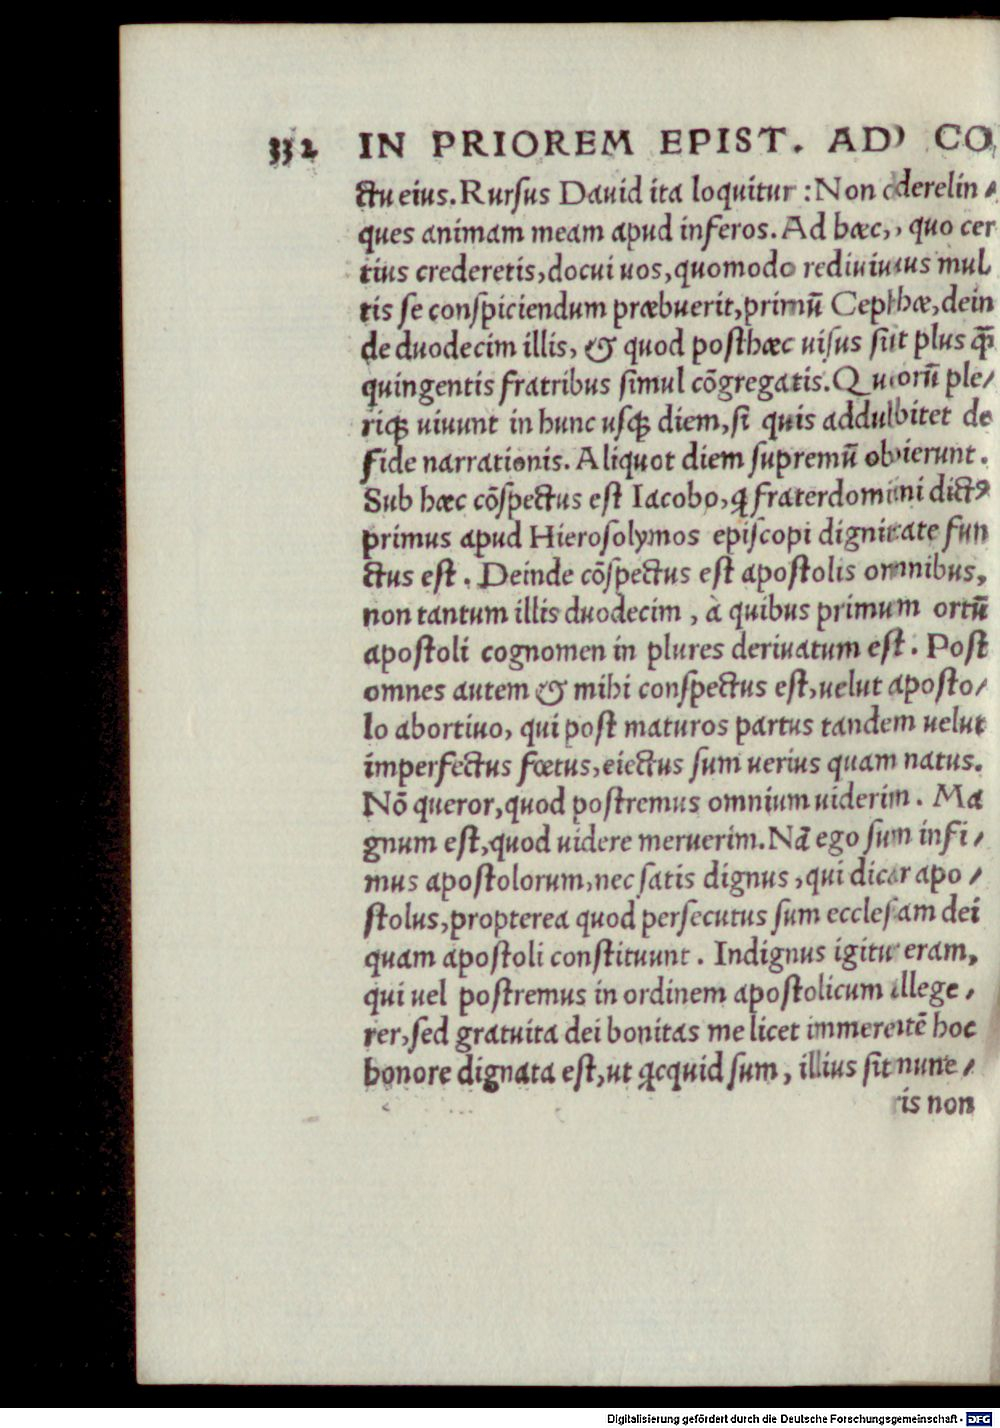 332 IN PRIOREM EPIST. AD CO
ctu eius. Rursus Dauid ita loquitur : Non derelin/
ques animam meam apud inferos. Ad hæc, quo cer
tius crederetis, docui uos, quomodo rediuiuus mul
tis se conspiciendum præbuerit, primū Cephæ, dein
de duodecim illis, & quod posthæc uisus sit plus q̄
quingentis fratribus simul cōgregatis. Quorū ple/
riq; uiuunt in hunc usq; diem, si quis addubitet de
fide narrationis. Aliquot diem supremū obierunt.
Sub hæc cōspectus est Iacobo, ꝗ frater domini dictꝰ
primus apud Hierosolymos episcopi dignitate fun
ctus est. Deinde cōspectus est apostolis omnibus,
non tantum illis duodecim, à quibus primum ortū
apostoli cognomen in plures deriuatum est. Post
omnes autem & mihi conspectus est, uelut aposto/
lo abortiuo, qui post maturos partus tandem uelut
imperfectus fœtus, eiectus sum uerius quam natus.
Nō queror, quod postremus omnium uiderim. Ma
gnum est, quod uidere meruerim. Nā ego sum infi/
mus apostolorum, nec satis dignus, qui dicar apo/
stolus, propterea quod persecutus sum ecclesiam dei
quam apostoli constituunt. Indignus igitur eram,
qui uel postremus in ordinem apostolicum illege/
rer, sed gratuita dei bonitas me licet immerentē hoc
honore dignata est, ut ꝗcquid sum, illius sit mune/
ris non
Digitalisierung gefördert durch die Deutsche Forschungsgemeinschaft - DFG